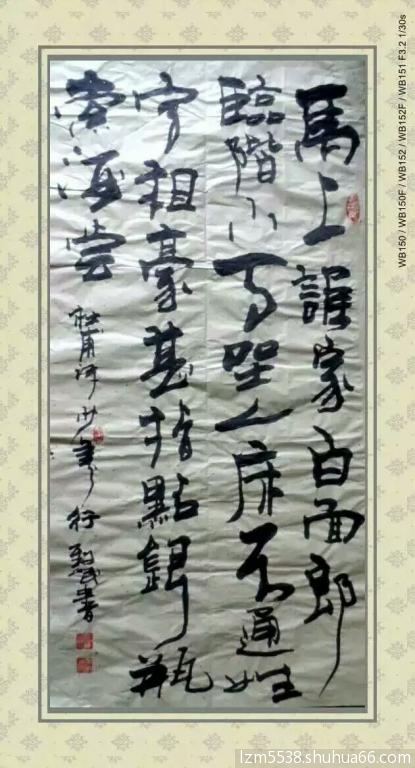 馬上誰家白面郎
臨階下馬坐人床不通姓
字粗豪甚指點銀瓶
索酒嘗
杜甫詩少年行 書
WB150 / WB150F / WB152 / WB152F / WB151 F3.2 1/30s
lzm5538.shuhua66.com